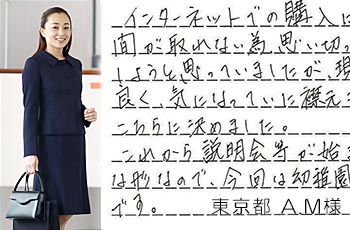 インターネットでの購入に
間が取れない為、思い切っ
しようと思っていましたが、
良く、気になっていた襟元
こちらに決めました。
これから説明会等が始ま
な形なので、今回は幼稚園
です。　東京都 A.M様